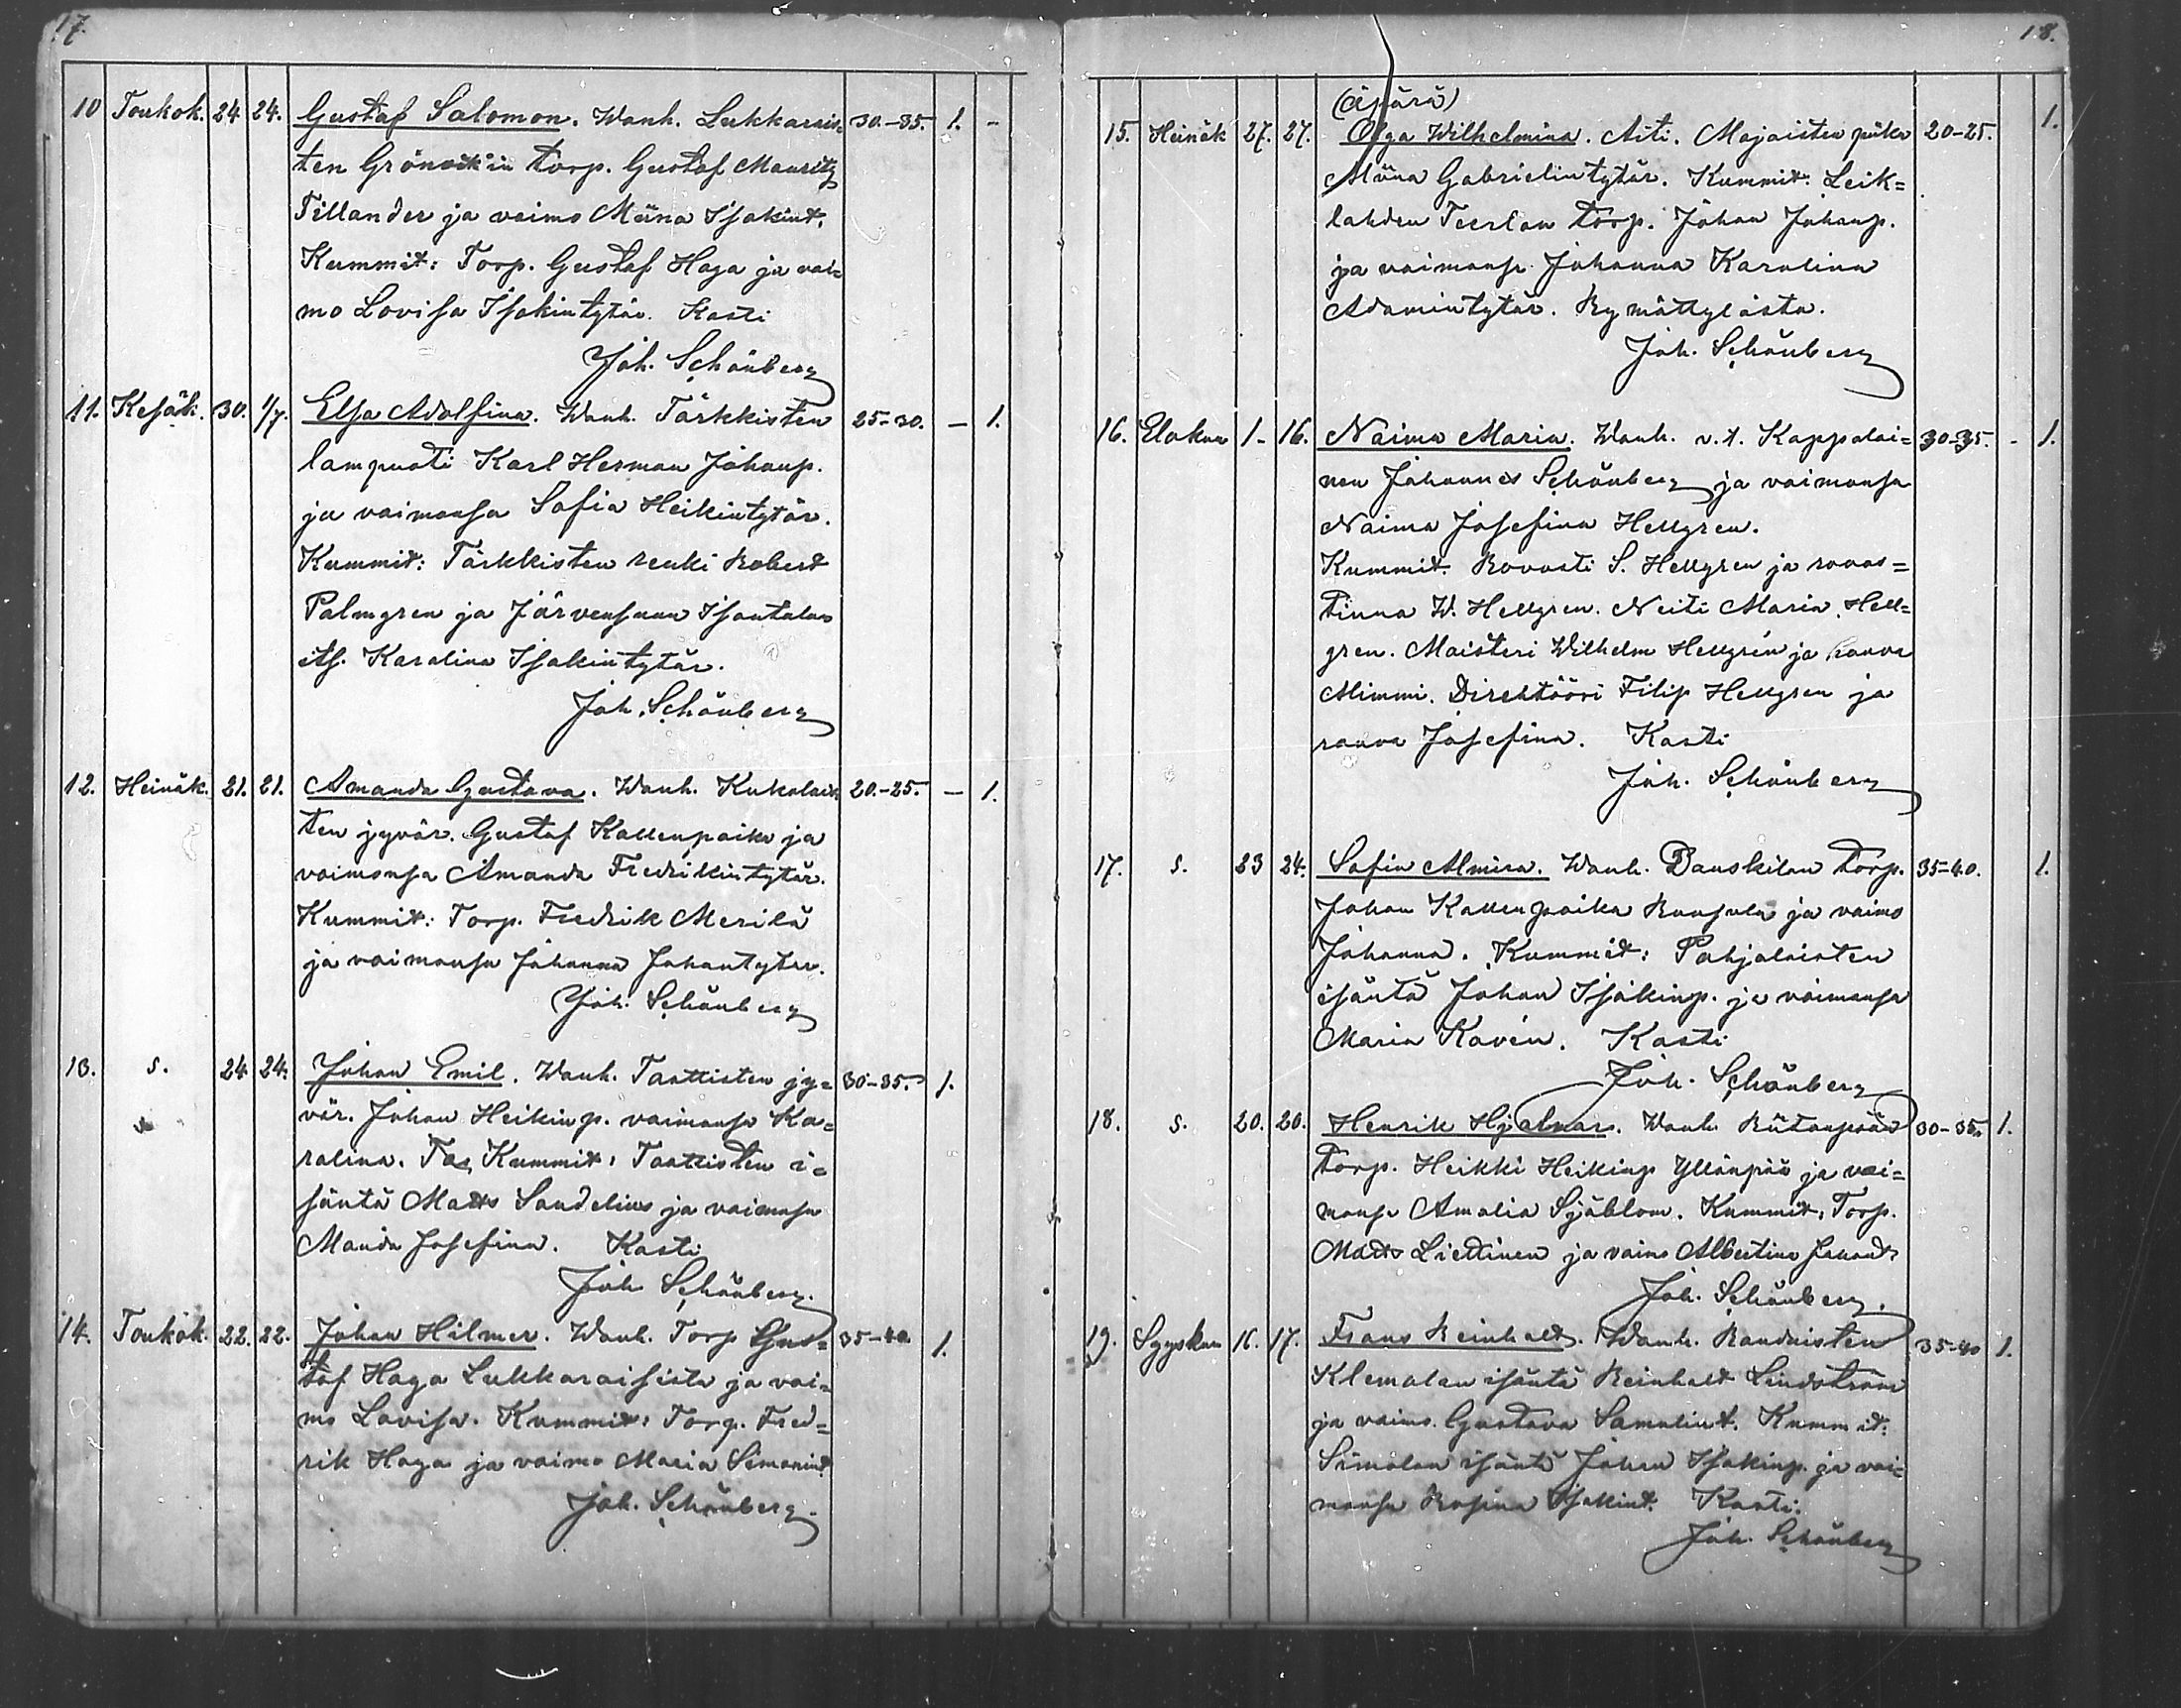 17.
10 Toukok. 24 24. Gustaf Salomon. Wanh. Lukkarais= 30.-35. 1. -
ten Grönvik'in torp. Gustaf Mauritz
Tillander ja vaimo Miina Isakint.
Kummit: Torp. Gustaf Haga ja vai=
mo Lovisa Isakintytär. Kasti
Joh. Schönberg
11. Kesäk. 30. 1/7. Elsa Adolfina. Wanh. Tärkkisten 25-30. - 1.
lampuoti Karl Herman Johanp.
ja vaimonsa Sofia Heikintytär.
Kummit: Tärkkisten renki Robert
Palmgren ja Järvensuun Isontalon
its. Karolina Isakintytär.
Joh. Schönberg
12. Heinäk. 21. 21. Amanda Gustava. Wanh. Kukolais= 20.-25. - 1.
ten jyvär. Gustaf Kallenpoika ja
vaimonsa Amanda Fredrikintytär.
Kummit: Torp. Fredrik Merilä
ja vaimonsa Johanna Johantytär.
Joh. Schönberg
13. s. 24 24. Johan Emil. Wanh. Taattisten jy= 30-35. 1.
vär. Johan Heikinp. vaimonsa Ka=
rolina. Kummit: Taattisten i=
säntä Matts Sandelius ja vaimonsa
Manda Josefina. Kasti
Joh Schönberg.
14. Toukok. 22. 22. Johan Hilmer. Wanh. Torp Gus= 35-40. 1.
taf Haga Lukkaraisista ja vai=
mo Lovisa. Kummit: Torp. Fred=
rik Haga ja vaimo Maria Simonint.
Joh. Schönberg.
18.
(Äpärä)
15. Heinäk 27. 27. Olga Wilhelmina. Äiti. Majaisten piika 20-25. 1.
Miina Gabrielintytär. Kummit: Leik=
lahden Teerlan torp. Johan Johanp.
ja vaimonsa Johanna Karolina
Adamintytär. Rymättylästä.
Joh. Schönberg
16. Elokuu 1- 16. Naima Maria. Wanh. v.t. Kappalai= 30-35. - 1.
nen Johannes Schönberg ja vaimonsa
Naima Josefina Hellgren.
Kummit. Rovasti S. Hellgren ja rovas=
tinna W. Hellgren. Neiti Maria Hell=
gren. Maisteri Wilhelm Hellgren ja rouva
Mimmi. Direhtööri Filip Hellgren ja
rouva Josefina. Kasti
Joh. Schönberg
17. s. 23 24. Sofia Elmira. Wanh. Pauskilan torp. 35-40. 1.
Johan Kallenpoika Ruusula ja vaimo
Johanna. Kummit: Pohjalaisten
isäntä Johan Isakinp. ja vaimonsa
Maria Kovén. Kasti
Joh. Schönberg
18. s. 20. 20. Henrik Hjalmar. Wanh. Riitanpään 30-35. 1.
torp. Heikki Heikinp Yllänpää ja vai=
monsa Amalia Sjöblom. Kummit: Torp.
Matts Liettinen ja vaimo Albertina Johant.
Joh. Schönberg.
19. Syyskuu 16. 17. Frans Reinhold. Wanh. Raudaisten 35-40 1.
Klemolan isäntä Reinhold Lindström
ja vaimo Gustava Samulint. Kummit:
Simolan isäntä Johan Isakinp. ja vai=
monsa Rosina Isakint. Kasti:
Joh. Schönberg